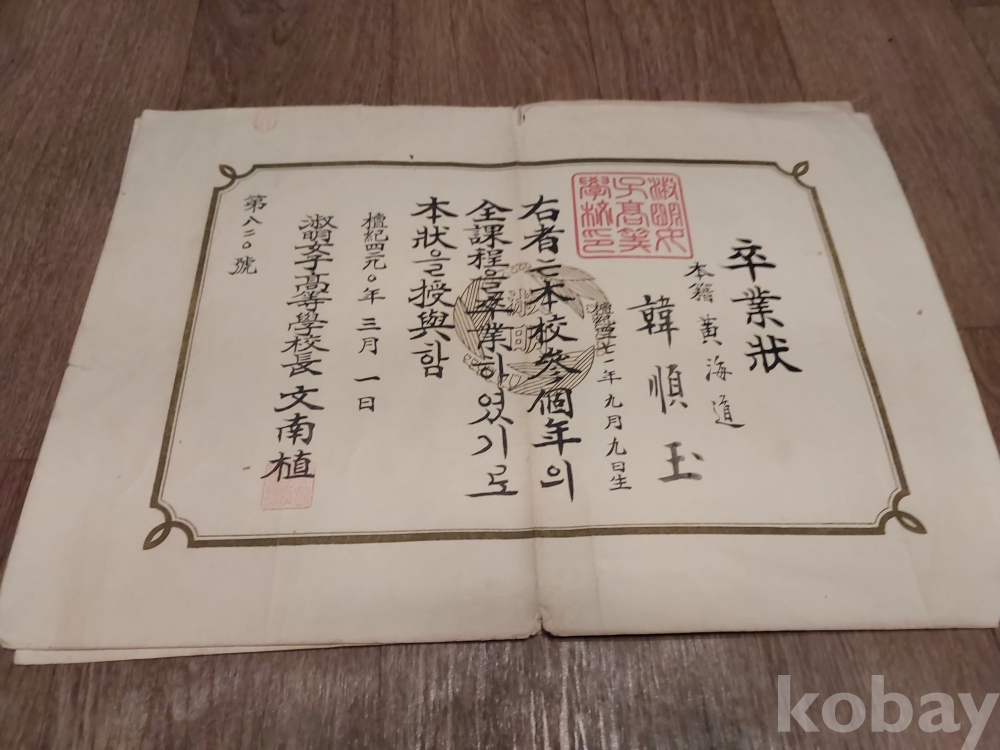 卒業狀
本籍 黃海道
韓順玉
檀紀四二七一年九月九日生
右者는本校參個年의
全課程을卒業하였기로
本狀을授與함
檀紀四二九〇年三月一日
淑明女子高等學校長 文南植
第八二〇號
淑明女
子高等
學校印
淑明
kobay